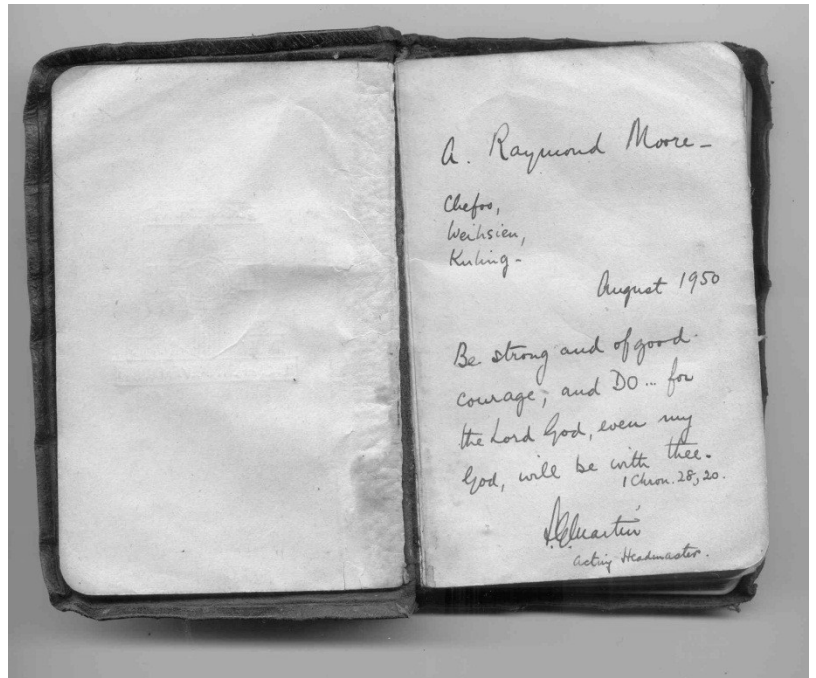 A. Raymond Moore -
Chefoo,
Weihsien,
Kuling -
August 1950
Be strong and of good
courage, and DO... for
the Lord God, even my
God, will be with thee.
1 Chron. 28, 20.
Martin
Acting Headmaster.